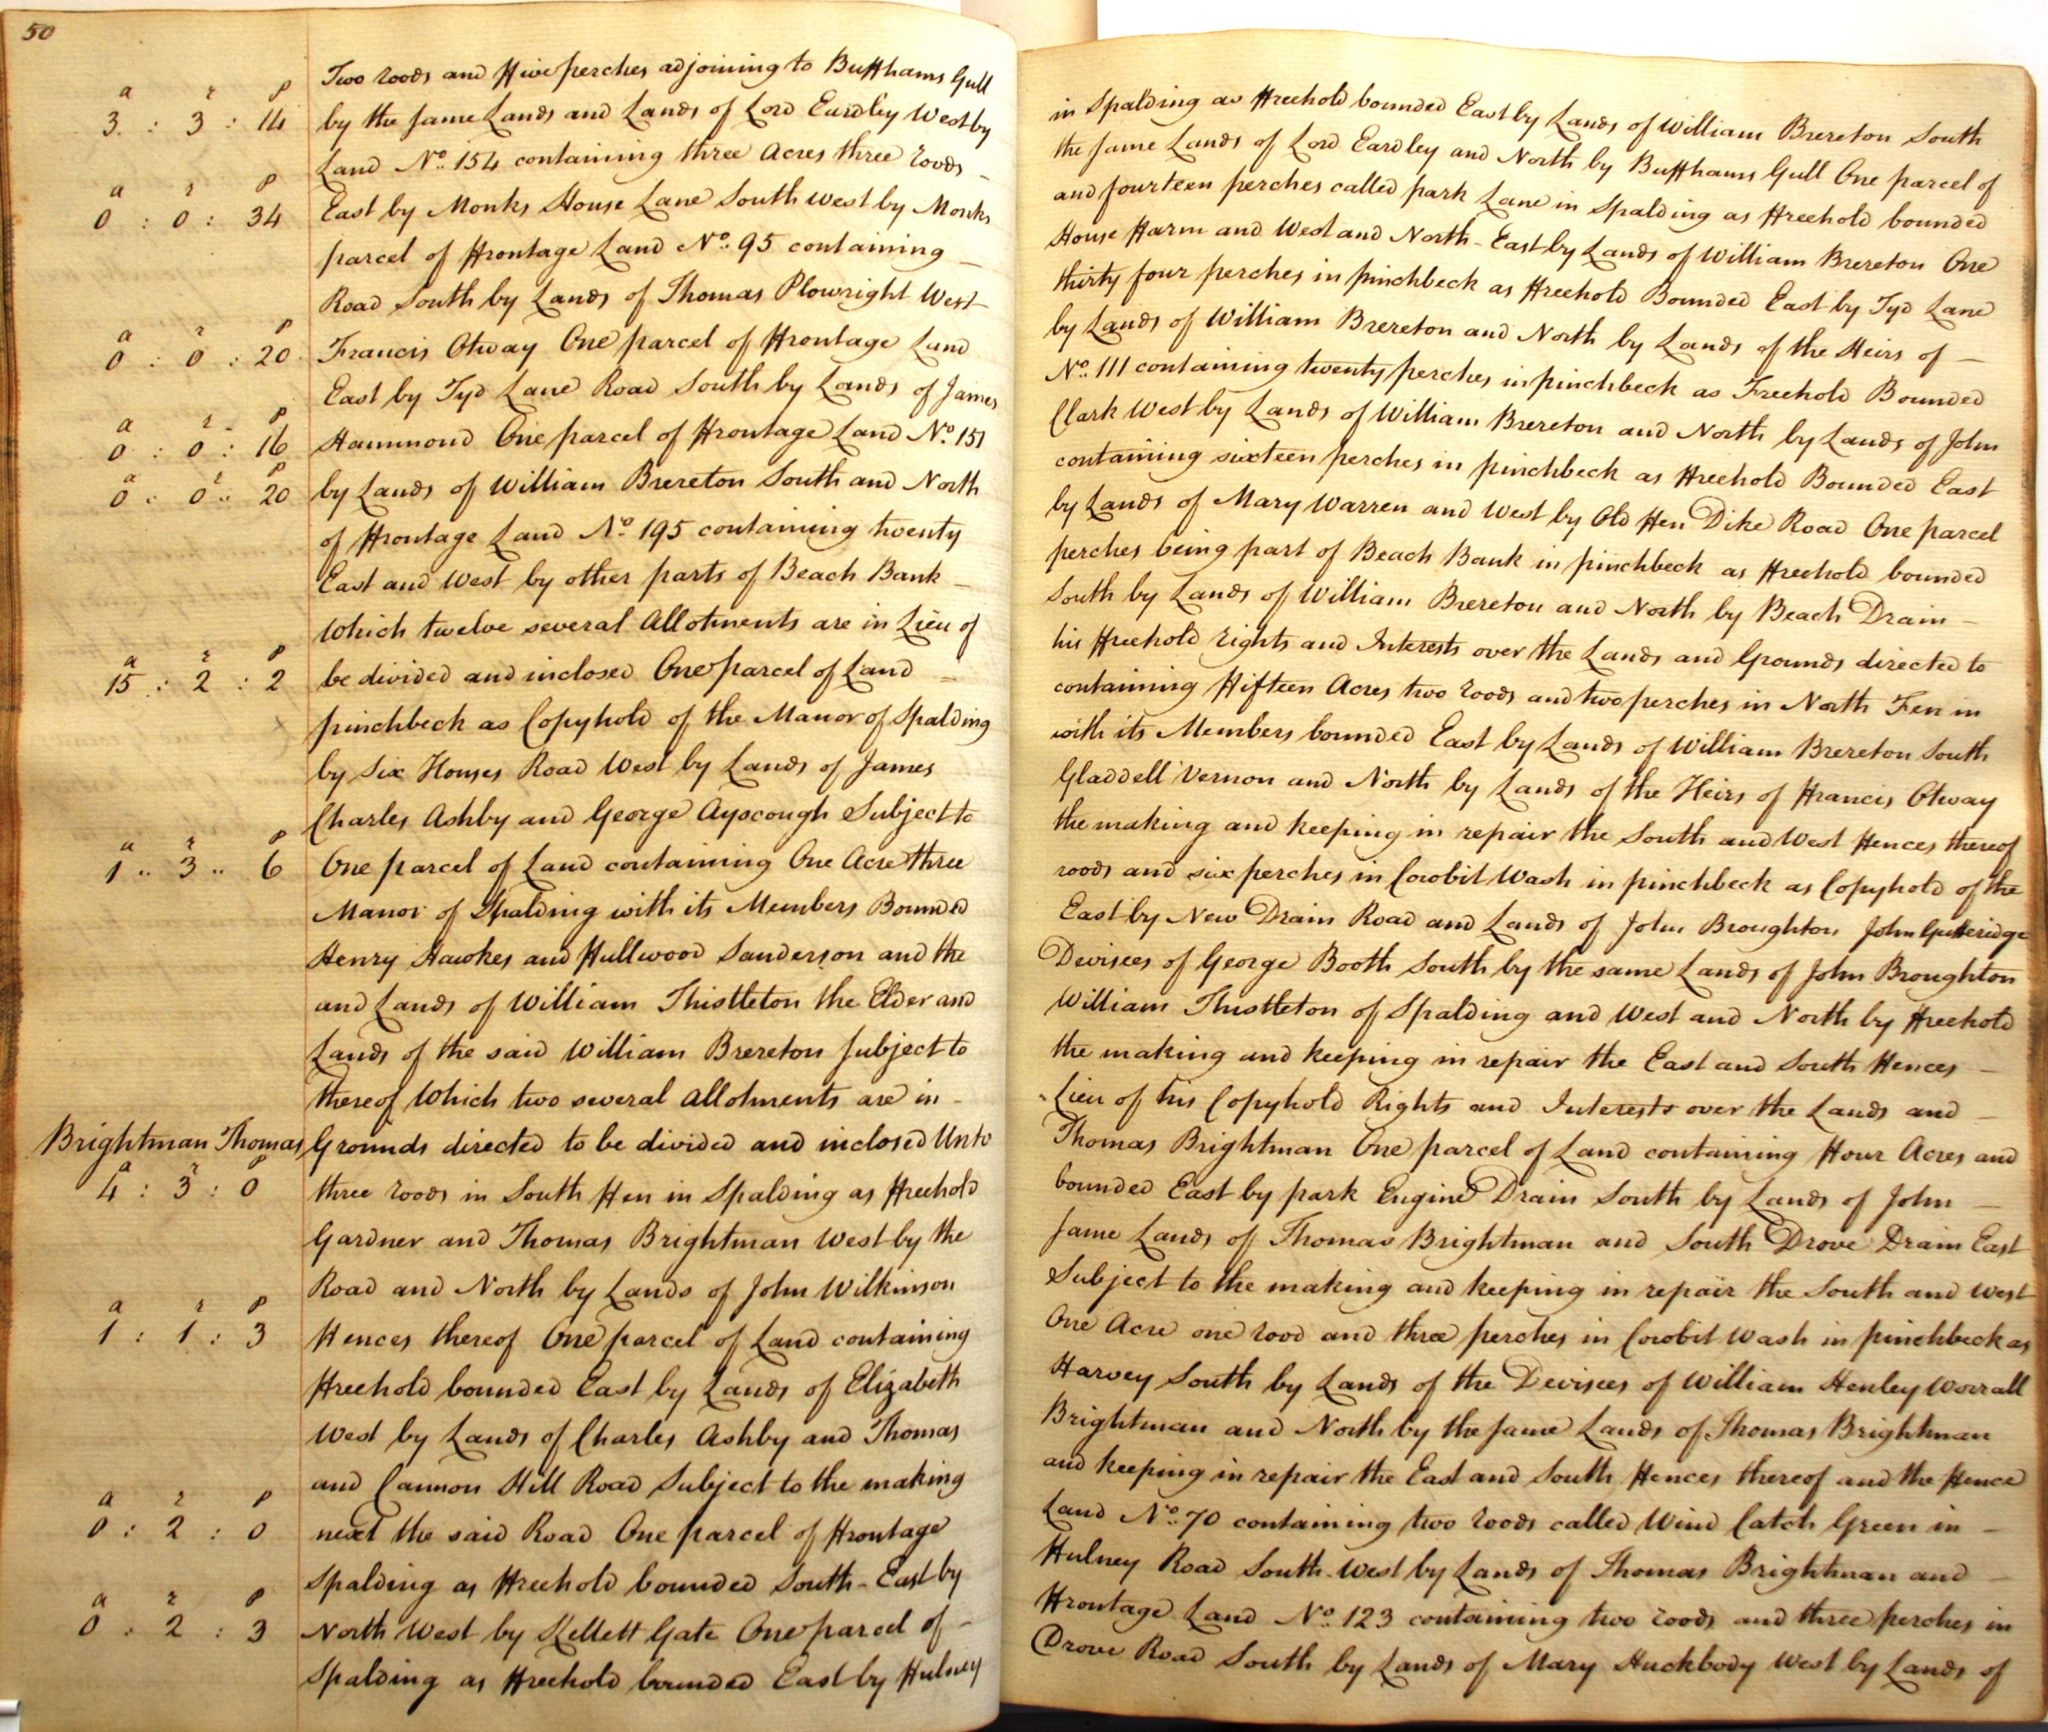 50
Two roods and Five perches adjoining to Buffhams Gull in Spalding as Freehold bounded East by Lands of William Brereton South
a r p
3 : 3 : 14 by the same Lands and Lands of Lord Eardley West by the same Lands of Lord Eardley and North by Buffhams Gull One parcel of
Land No. 154 containing three Acres three roods - and fourteen perches called park Lane in Spalding as Freehold bounded
a r p
0 : 0 : 34 East by Monks House Lane South West by Monks House Farm and West and North-East by Lands of William Brereton One
parcel of Frontage Land No. 95 containing - thirty four perches in pinchbeck as Freehold Bounded East by Tyd Lane
Road South by Lands of Thomas Plowright West by Lands of William Brereton and North by Lands of the Heirs of -
a r p
0 : 0 : 20 Francis Otway One parcel of Frontage Land No. 111 containing twenty perches in pinchbeck as Freehold Bounded
East by Tyd Lane Road South by Lands of James Clark West by Lands of William Brereton and North by Lands of John
a r p
0 : 0 : 16 Hammond One parcel of Frontage Land No. 151 containing sixteen perches in pinchbeck as Freehold Bounded East
a r p
0 : 0 : 20 by Lands of William Brereton South and North by Lands of Mary Warren and West by Old Fen Dike Road One parcel
of Frontage Land No. 195 containing twenty perches being part of Beach Bank in pinchbeck as Freehold bounded
East and West by other parts of Beach Bank - South by Lands of William Brereton and North by Beach Drain -
Which twelve several Allotments are in Lieu of his Freehold rights and Interests over the Lands and Grounds directed to
a r p
15 : 2 : 2 be divided and inclosed One parcel of Land - containing Fifteen Acres two roods and two perches in North Fen in
pinchbeck as Copyhold of the Manor of Spalding with its Members bounded East by Lands of William Brereton South
by Six Houses Road West by Lands of James Gladdell Vernon and North by Lands of the Heirs of Francis Otway
Charles Ashby and George Ayscough Subject to the making and keeping in repair the South and West Fences thereof
a r p
1 .. 3 .. 6 One parcel of Land containing One Acre three roods and six perches in Cowbit Wash in pinchbeck as Copyhold of the
Manor of Spalding with its Members Bounded East by New Drain Road and Lands of John Broughton John Gutteridge
Henry Hawkes and Fullwood Sanderson and the Devisees of George Booth South by the same Lands of John Broughton
and Lands of William Thistleton the Elder and William Thistleton of Spalding and West and North by Freehold
Lands of the said William Brereton Subject to the making and keeping in repair the East and South Fences -
thereof Which two several Allotments are in - Lieu of his Copyhold Rights and Interests over the Lands and -
Brightman Thomas Grounds directed to be divided and inclosed Unto Thomas Brightman One parcel of Land containing Four Acres and
a r p
4 : 3 : 0 three roods in South Fen in Spalding as Freehold bounded East by park Engine Drain South by Lands of John -
Gardner and Thomas Brightman West by the same Lands of Thomas Brightman and South Drove Drain East
Road and North by Lands of John Wilkinson Subject to the making and keeping in repair the South and West
a r p
1 : 1 : 3 Fences thereof One parcel of Land containing One Acre one rood and three perches in Cowbit Wash in pinchbeck as
Freehold bounded East by Lands of Elizabeth Harvey South by Lands of the Devisees of William Henley Worrall
West by Lands of Charles Ashby and Thomas Brightman and North by the same Lands of Thomas Brightman
and Cannon Hill Road Subject to the making and keeping in repair the East and South Fences thereof and the Fence
a r p
0 : 2 : 0 next the said Road One parcel of Frontage Land No. 70 containing two roods called Wind Catch Green in -
Spalding as Freehold bounded South-East by Hulney Road South-West by Lands of Thomas Brightman and -
a r p
0 : 2 : 3 North West by Kellett Gate One parcel of - Frontage Land No. 123 containing two roods and three perches in
Spalding as Freehold bounded East by Hulney Drove Road South by Lands of Mary Huckbody West by Lands of